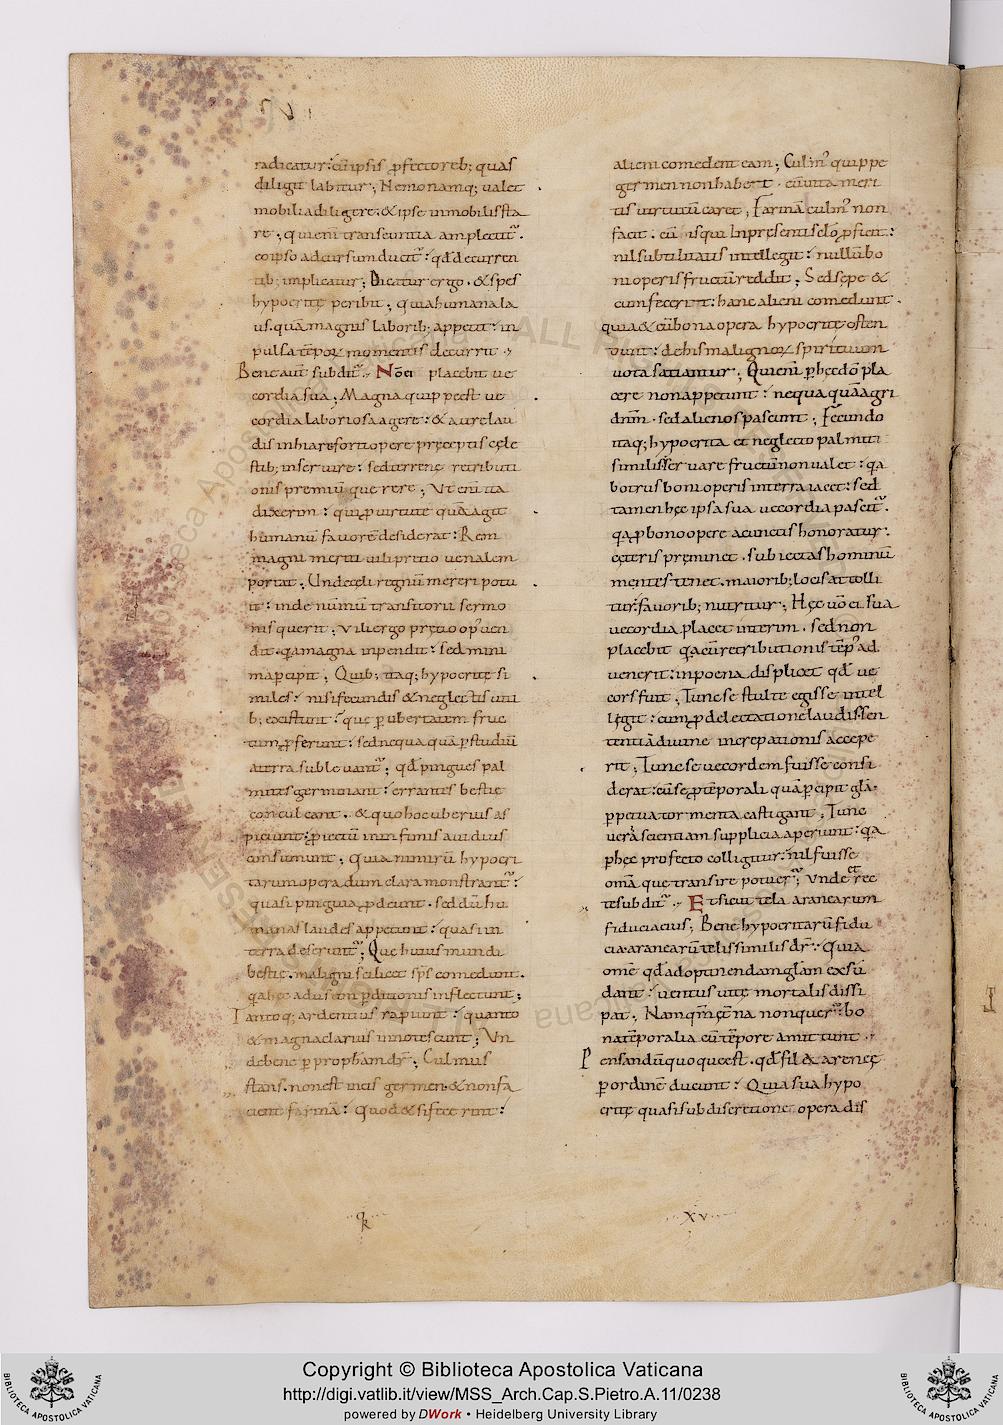 radicatur: cū ipsis ꝓfectoreb; quas
diligit labitur; Nemo namq; ualet
mobilia diligere: & ipse inmobilis sta
re; qui enī transeuntia amplectit᷑.
eo ipso ad cursum ducit᷑: qđ decurren
tib; implicatur; Dicatur ergo. & spes
hypocritę peribit; quia humana la
us. quā magnis laborib; appetit: in
pulsa tēporꝝ momentis decurrit;
Bene aut subdit᷑; Nō ei placebit ue
cordia sua; Magna quippe est ue
cordia laboriosa agere: & aurę lau
dis inhiare. forti opere pręceptis cęle
stib; inseruire: sed terrenę retributi
onis premiū quęrere; Ut enī ita
dixerim: qui ꝓ uirtute quā agit
humanū fauorē desiderat: Rem
magni meriti uili pretio uenalem
portat; Unde cęli regnū mereri potu
it: inde nūmū transitorii sermo
nis querit; Vili ergo prętio op᷒ uen
dit. qa magna inpendit: sed mini
ma p̄cipit; Quib; itaq; hypocritę si
miles: nisi fecundis & neglectis uiti
b; existunt: quę ꝑ ubertatem fruc
tum ꝓferunt: sed nequaquā ꝑ studiū
a terra subleuant᷑; qđ pingues pal
mites germinant: errantes bestię
conculcant. & quo hoc uberius as
piciunt: ꝓiectū in infimis auidius
consumunt; Quia nimirū hypocri
tarum opera dum clara monstrant᷑:
quasi pinguia ꝓdeunt. sed dū hu
manas laudes appetunt: quasi in
terra deserunt᷑; Quę huius mundi
bestię. maligni scilicet sp̄s comedunt.
qa hęc ad usum ꝑditionis inflectunt;
Tantoq; ardentius rapiunt: quanto
& magna clarius innotescunt; Un
de bene ꝑ prophām dr̄; Culmus
stans. non est in eis germen. & non fa
cient farinā: Quod & si fecerint:
alieni comedent eam; Culm᷒ quippe
germen non habet. cū uita meri
tis uirtutū caret; Farinā culm᷒ non
facit. cū isqui in presenti sclo ꝓficit:
nil subtilitatis intellegit: nullū bo
ni operis fructū reddit; Sed sepe &
cum fecerit: hanc alieni comedunt.
quia & cū bona opera hypocritę osten
dunt: de his malignoꝝ spirituum
uota satiantur; Qui enī ꝑ hęc dō pla
cere non appetunt: nequaquā agri
dn̄m. sed alienos pascunt; Fęcundo
itaq; hypocrita et neglecto palmiti
similis seruare fructū non ualet: qa
botrus boni operis in terra iacet: sed
tamen hęc ipsa sua uecordia pascit᷑.
qa ꝓ bono opere a cunctis honoratur.
ceteris preminet. subiectas hominū
mentes tenet. maiorib; locis attolli
tur. fauorib; nutritur; Hęc uō ei sua
uecordia placet interim. sed non
placebit qa cū retributionis tēp᷒ ad
uenerit: in poena displicet qđ ue
cors fuit; Tunc se stulte egisse intel
legit: cum ꝓ delectatione laudis sen
tentiā diuine increpationis acceper
rit; Tunc se uecordem fuisse consi
derat: cū se ꝓ tēporali quā ꝑcipit glā.
ꝑpetua tormenta castigant; Tunc
uerā scientiam supplicia aperiunt: qa
ꝑ hęc profecto colligitur: nil fuisse
omā que transire potuer᷑; Unde et rec
te subdit᷑; Et sicut tela aranearum
fiducia eius; Bene hypocritarū fidu
cia aranearū telis similis dr̄: Quia
omē qđ ad optinendam glām exsu
dant: uentus uitę mortalis dissi
pat; Nam qm̄ ęt̄na non querer᷑: bo
na tēporalia cū tēpore amittunt;
Pensandū quoque est. qđ fila araneę
ꝑ ordinē ducunt: Quia sua hypo
critę quasi sub discretione. opera dis
xv